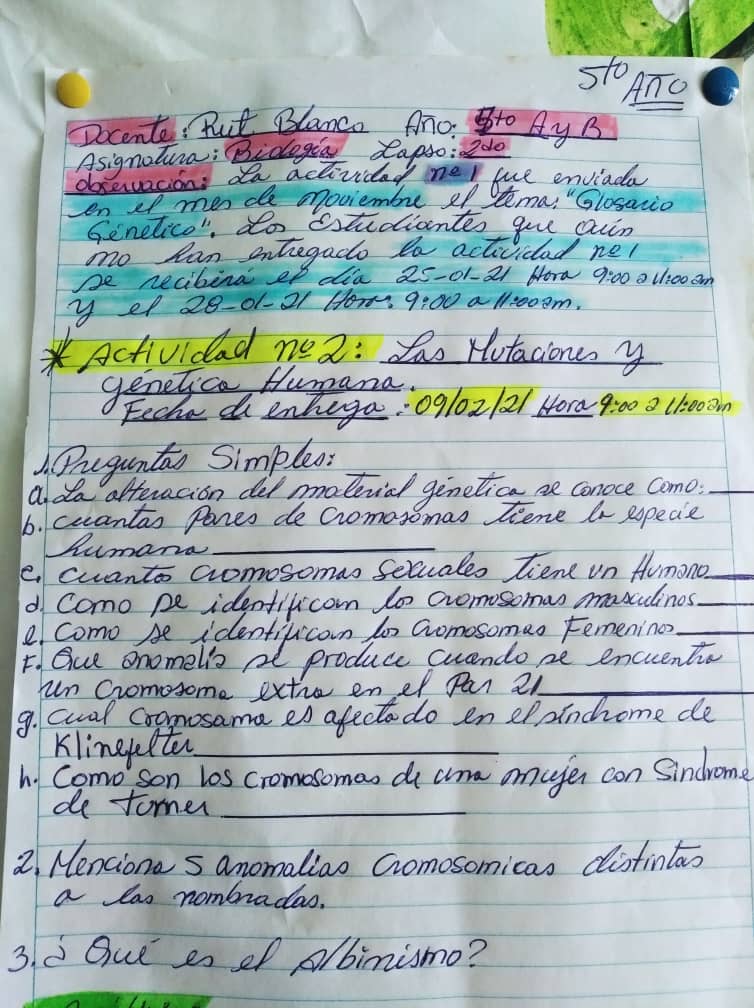 5to Año
Docente: Rut Blanco Año: 5to A y B
Asignatura: Biología Lapso: 2do
observación: La actividad nº 1 fue enviada
en el mes de noviembre el tema: "Glosario
Génetico". Los Estudiantes que aún
no han entregado la actividad nº 1
se recibirá el día 25-01-21 Hora 9:00 a 11:00 am
y el 28-01-21 Hora: 9:00 a 11:00 am.
* Actividad nº 2: Las Mutaciones y
génetica Humana.
Fecha de entrega: 09/02/21 Hora 9:00 a 11:00 am
1. Preguntas Simples:
a. La alteración del material génetico se conoce como:
b. cuantas Pares de Cromosomas tiene la especie
humana
c. cuanto cromosomas sexuales tiene un Humano
d. Como se identifican los cromosomas masculinos
e. Como se identifican los cromosomas Femeninos
F. Que anomalia se produce cuando se encuentra
un cromosoma extra en el Par 21
g. Cual cromosoma es afectado en el síndrome de
Klinefelter
h. Como son los cromosomas de una mujer con Sindrome
de torner
2. Menciona 5 anomalias cromosomicas distintas
a las nombradas.
3. ¿Qué es el Albinismo?